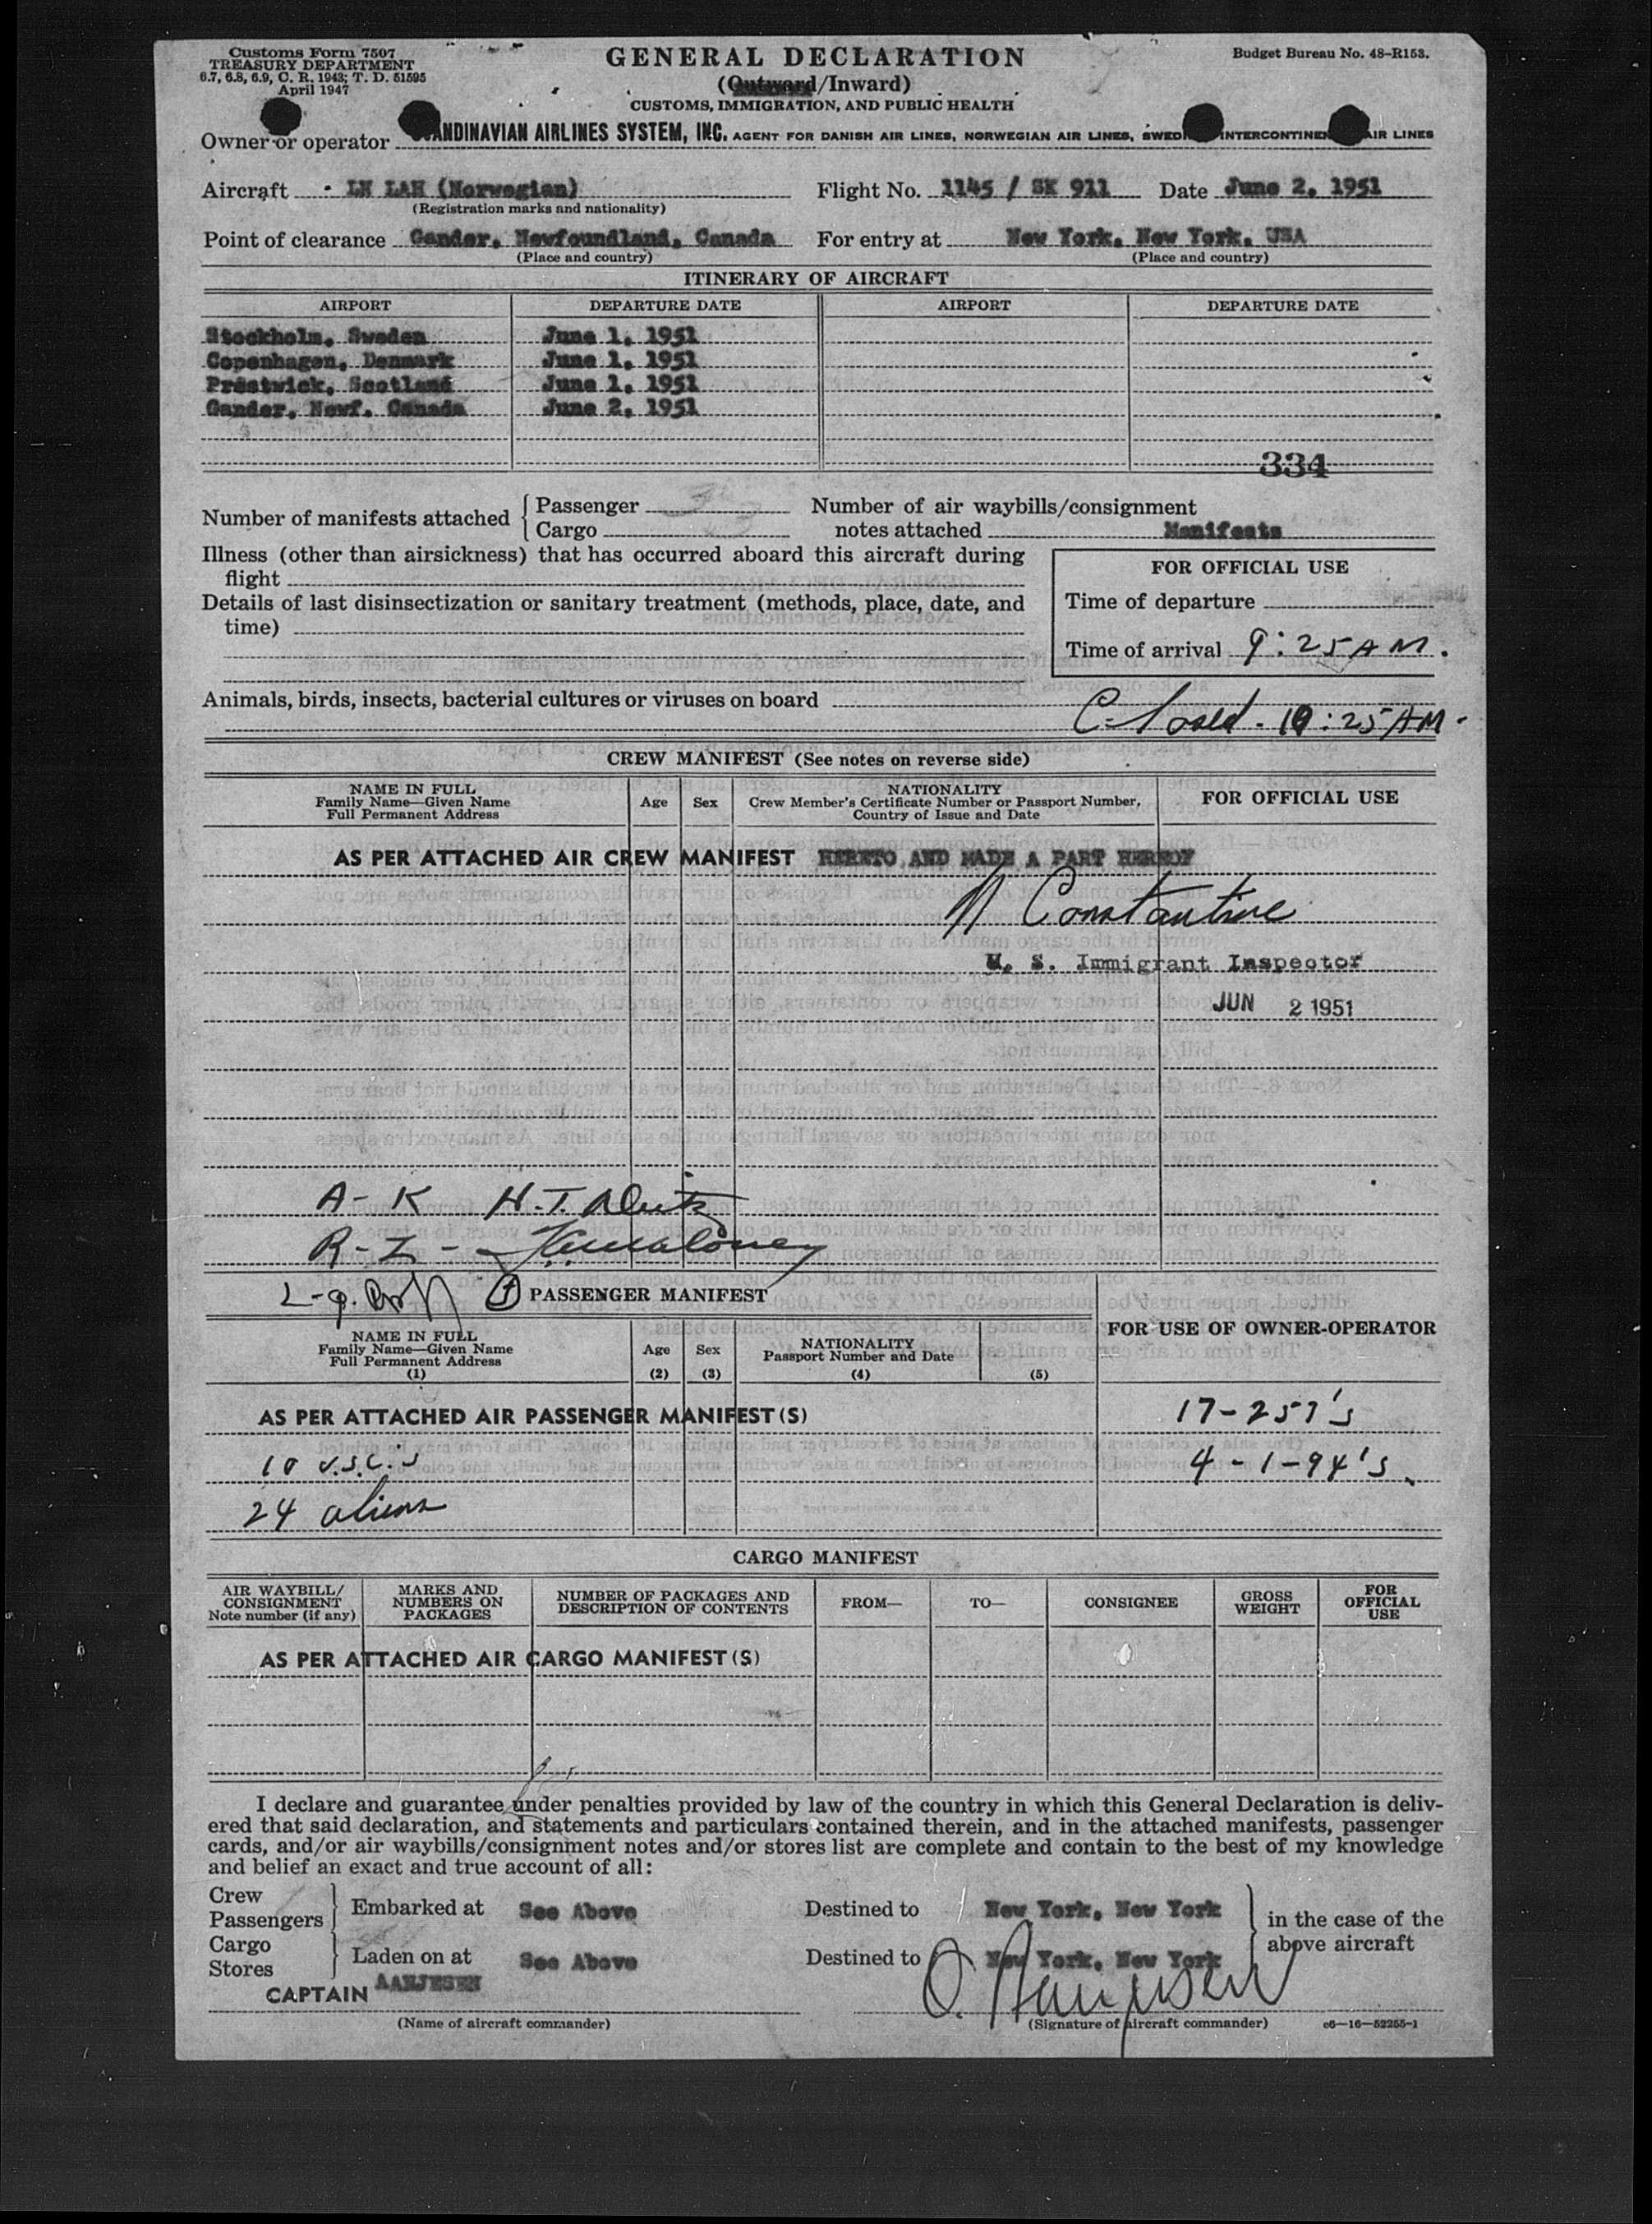 Customs Form 7507
TREASURY DEPARTMENT
6.7, 6.8, 6.9, C. R. 1943; T. D. 51595
April 1947
GENERAL DECLARATION
(Outward/Inward)
CUSTOMS, IMMIGRATION, AND PUBLIC HEALTH
Budget Bureau No. 48-R153.
Owner or operator ANDINAVIAN AIRLINES SYSTEM, INC. AGENT FOR DANISH AIR LINES, NORWEGIAN AIR LINES, SWED INTERCONTINEN AIR LINES
Aircraft LN LAH (Norwegian) Flight No. 1145 / SK 911 Date June 2, 1951
(Registration marks and nationality)
Point of clearance Gander, Newfoundland, Canada For entry at New York, New York, USA
(Place and country) (Place and country)
ITINERARY OF AIRCRAFT
AIRPORT DEPARTURE DATE AIRPORT DEPARTURE DATE
Stockholm, Sweden June 1, 1951
Copenhagen, Denmark June 1, 1951
Prestwick, Scotland June 1, 1951
Gander, Newf. Canada June 2, 1951
334
Number of manifests attached { Passenger 3
Cargo
Number of air waybills/consignment
notes attached Manifests
Illness (other than airsickness) that has occurred aboard this aircraft during
flight
Details of last disinsectization or sanitary treatment (methods, place, date, and
time)
FOR OFFICIAL USE
Time of departure
Time of arrival 9:25 AM.
Animals, birds, insects, bacterial cultures or viruses on board
Closed - 10:25 AM.
CREW MANIFEST (See notes on reverse side)
NAME IN FULL
Family Name—Given Name
Full Permanent Address
Age
Sex
NATIONALITY
Crew Member's Certificate Number or Passport Number,
Country of Issue and Date
FOR OFFICIAL USE
AS PER ATTACHED AIR CREW MANIFEST HERETO AND MADE A PART HEREOF
N Constantine
U. S. Immigrant Inspector
JUN 2 1951
A - K H. T.
R - Z -
PASSENGER MANIFEST
NAME IN FULL
Family Name—Given Name
Full Permanent Address
(1)
Age
(2)
Sex
(3)
NATIONALITY
Passport Number and Date
(4)
(5)
FOR USE OF OWNER-OPERATOR
AS PER ATTACHED AIR PASSENGER MANIFEST(S)
17 - 257's
10 U.S.C.s
4 - 1-94's
24 aliens
CARGO MANIFEST
AIR WAYBILL/
CONSIGNMENT
Note number (if any)
MARKS AND
NUMBERS ON
PACKAGES
NUMBER OF PACKAGES AND
DESCRIPTION OF CONTENTS
FROM—
TO—
CONSIGNEE
GROSS
WEIGHT
FOR
OFFICIAL
USE
AS PER ATTACHED AIR CARGO MANIFEST(S)
I declare and guarantee under penalties provided by law of the country in which this General Declaration is deliv-
ered that said declaration, and statements and particulars contained therein, and in the attached manifests, passenger
cards, and/or air waybills/consignment notes and/or stores list are complete and contain to the best of my knowledge
and belief an exact and true account of all:
Crew
Passengers } Embarked at See Above Destined to New York, New York
Cargo
Stores } Laden on at See Above Destined to New York, New York
in the case of the
above aircraft
CAPTAIN AANJESEN
O. Aanjesen
(Name of aircraft commander) (Signature of aircraft commander) c6—16—52255-1